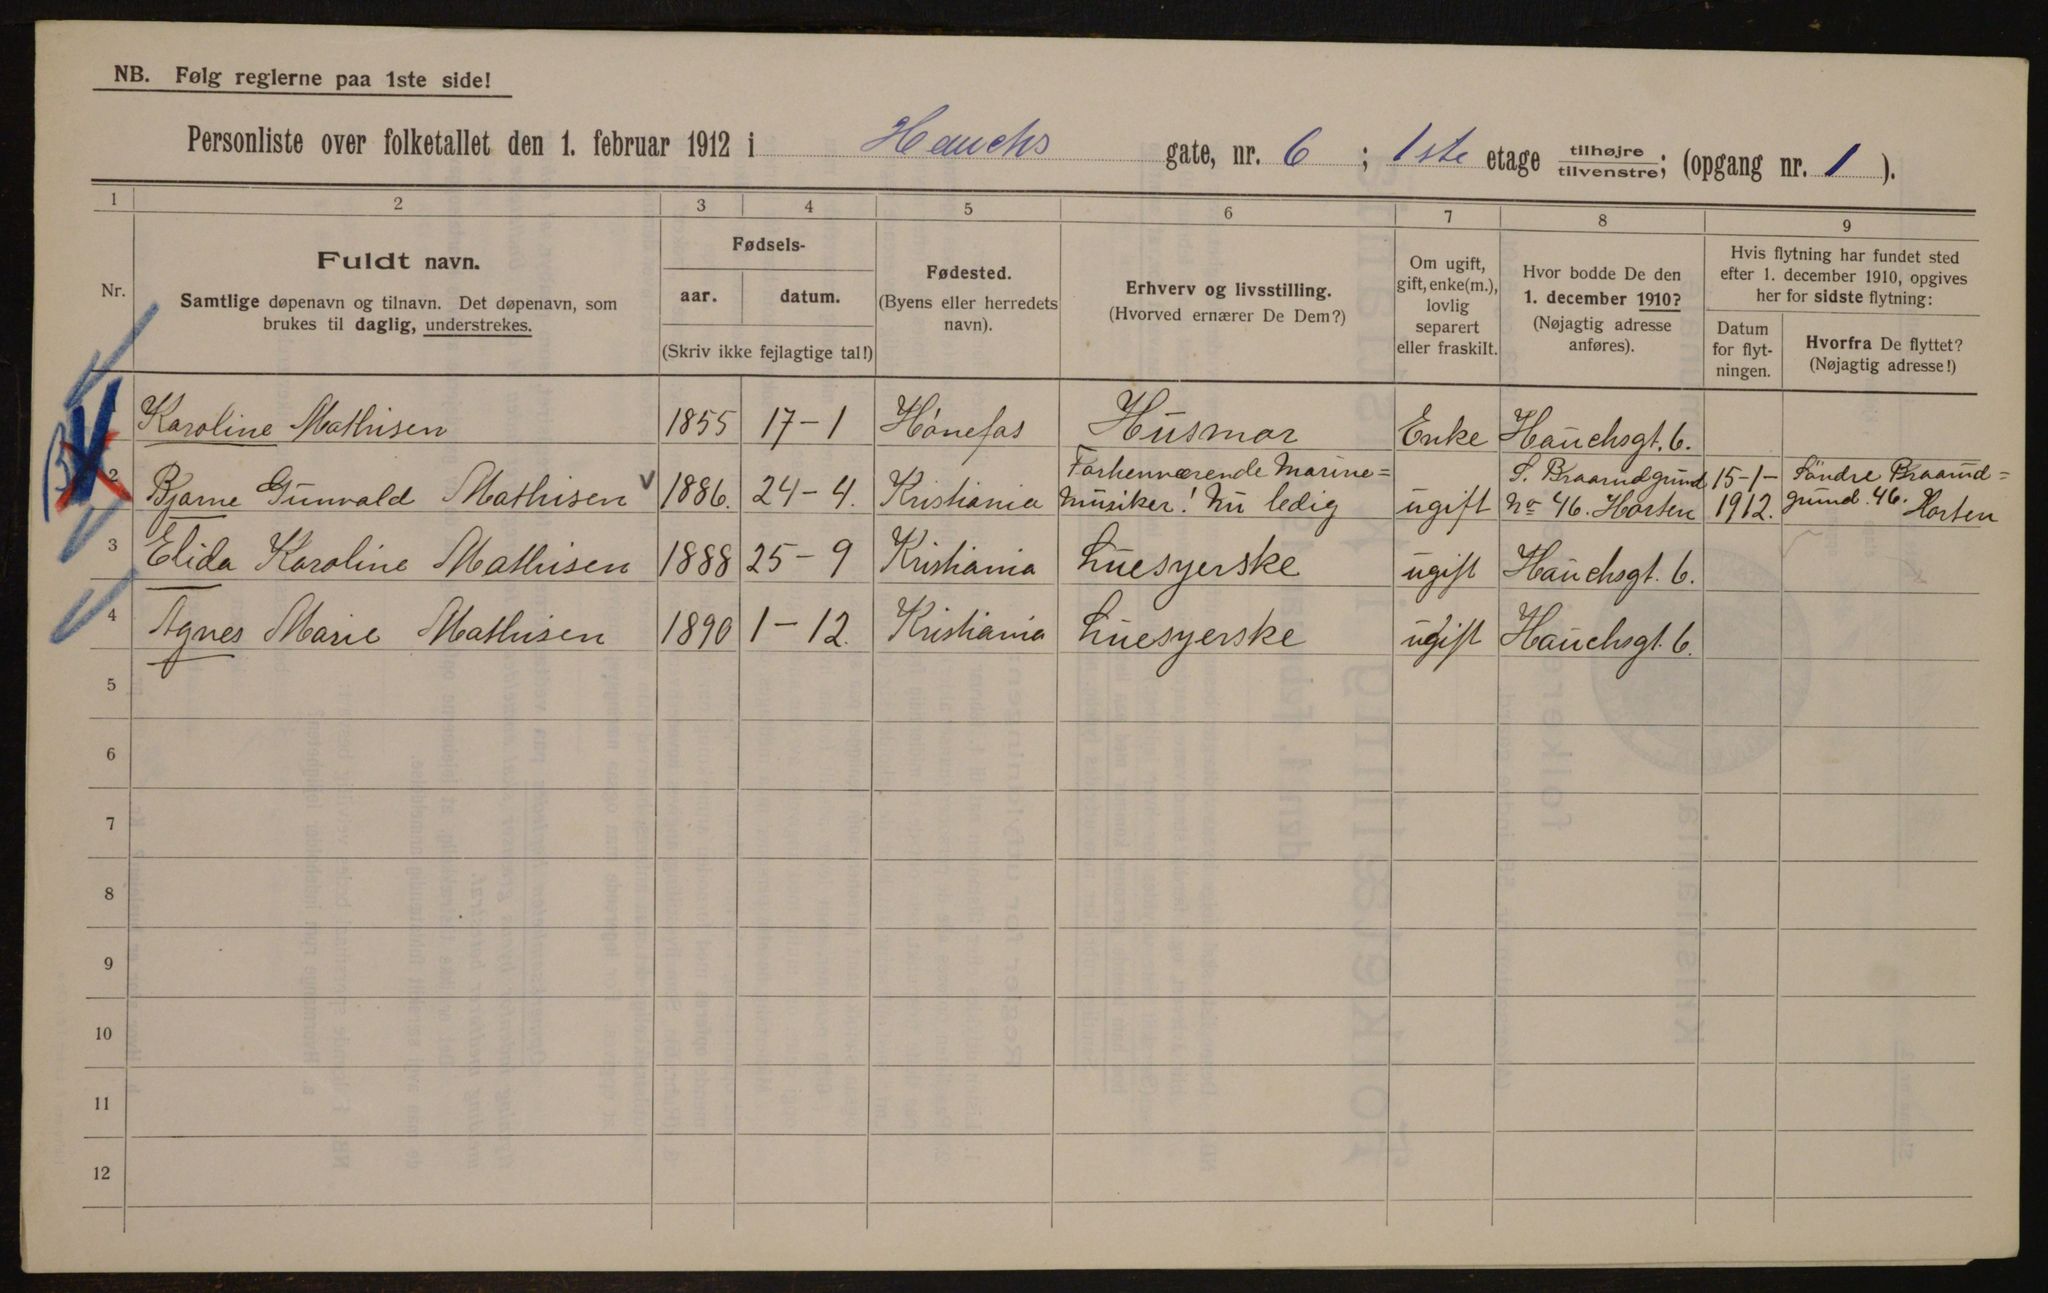 NB. Følg reglerne paa 1ste side!
Personliste over folketallet den 1. februar 1912 i Hauchs gate, nr. 6 ; 1ste etage tilhøjre/tilvenstre; (opgang nr. 1 ).
1 2 3 4 5 6 7 8 9
Nr.
Fuldt navn.
Samtlige døpenavn og tilnavn. Det døpenavn, som
brukes til daglig, understrekes.
Fødsels-
aar. datum.
(Skriv ikke fejlagtige tal!)
Fødested.
(Byens eller herredets
navn).
Erhverv og livsstilling.
(Hvorved ernærer De Dem?)
Om ugift,
gift, enke(m.),
lovlig
separert
eller fraskilt.
Hvor bodde De den
1. december 1910?
(Nøjagtig adresse
anføres).
Hvis flytning har fundet sted
efter 1. december 1910, opgives
her for sidste flytning:
Datum
for flyt-
ningen.
Hvorfra De flyttet?
(Nøjagtig adresse!)
Karoline Mathisen 1855 17-1 Hónefos Husmor Enke Hauchsgt. 6.
2 Bjarne Gunvald Mathisen 1886. 24-4. Kristiania Forhenværende Marine=
musiker! Nu ledig ugift S. Braarudgrund
No 46. Horten 15-1-
1912. Söndre Braarud=
grund. 46. Horten
3 Elida Karoline Mathisen 1888 25-9 Kristiania Luesyerske ugift Hauchsgt. 6.
4 Agnes Marie Mathisen 1890 1-12. Kristiania Luesyerske ugift Hauchsgt. 6.
5
6
7
8
9
10
11
12